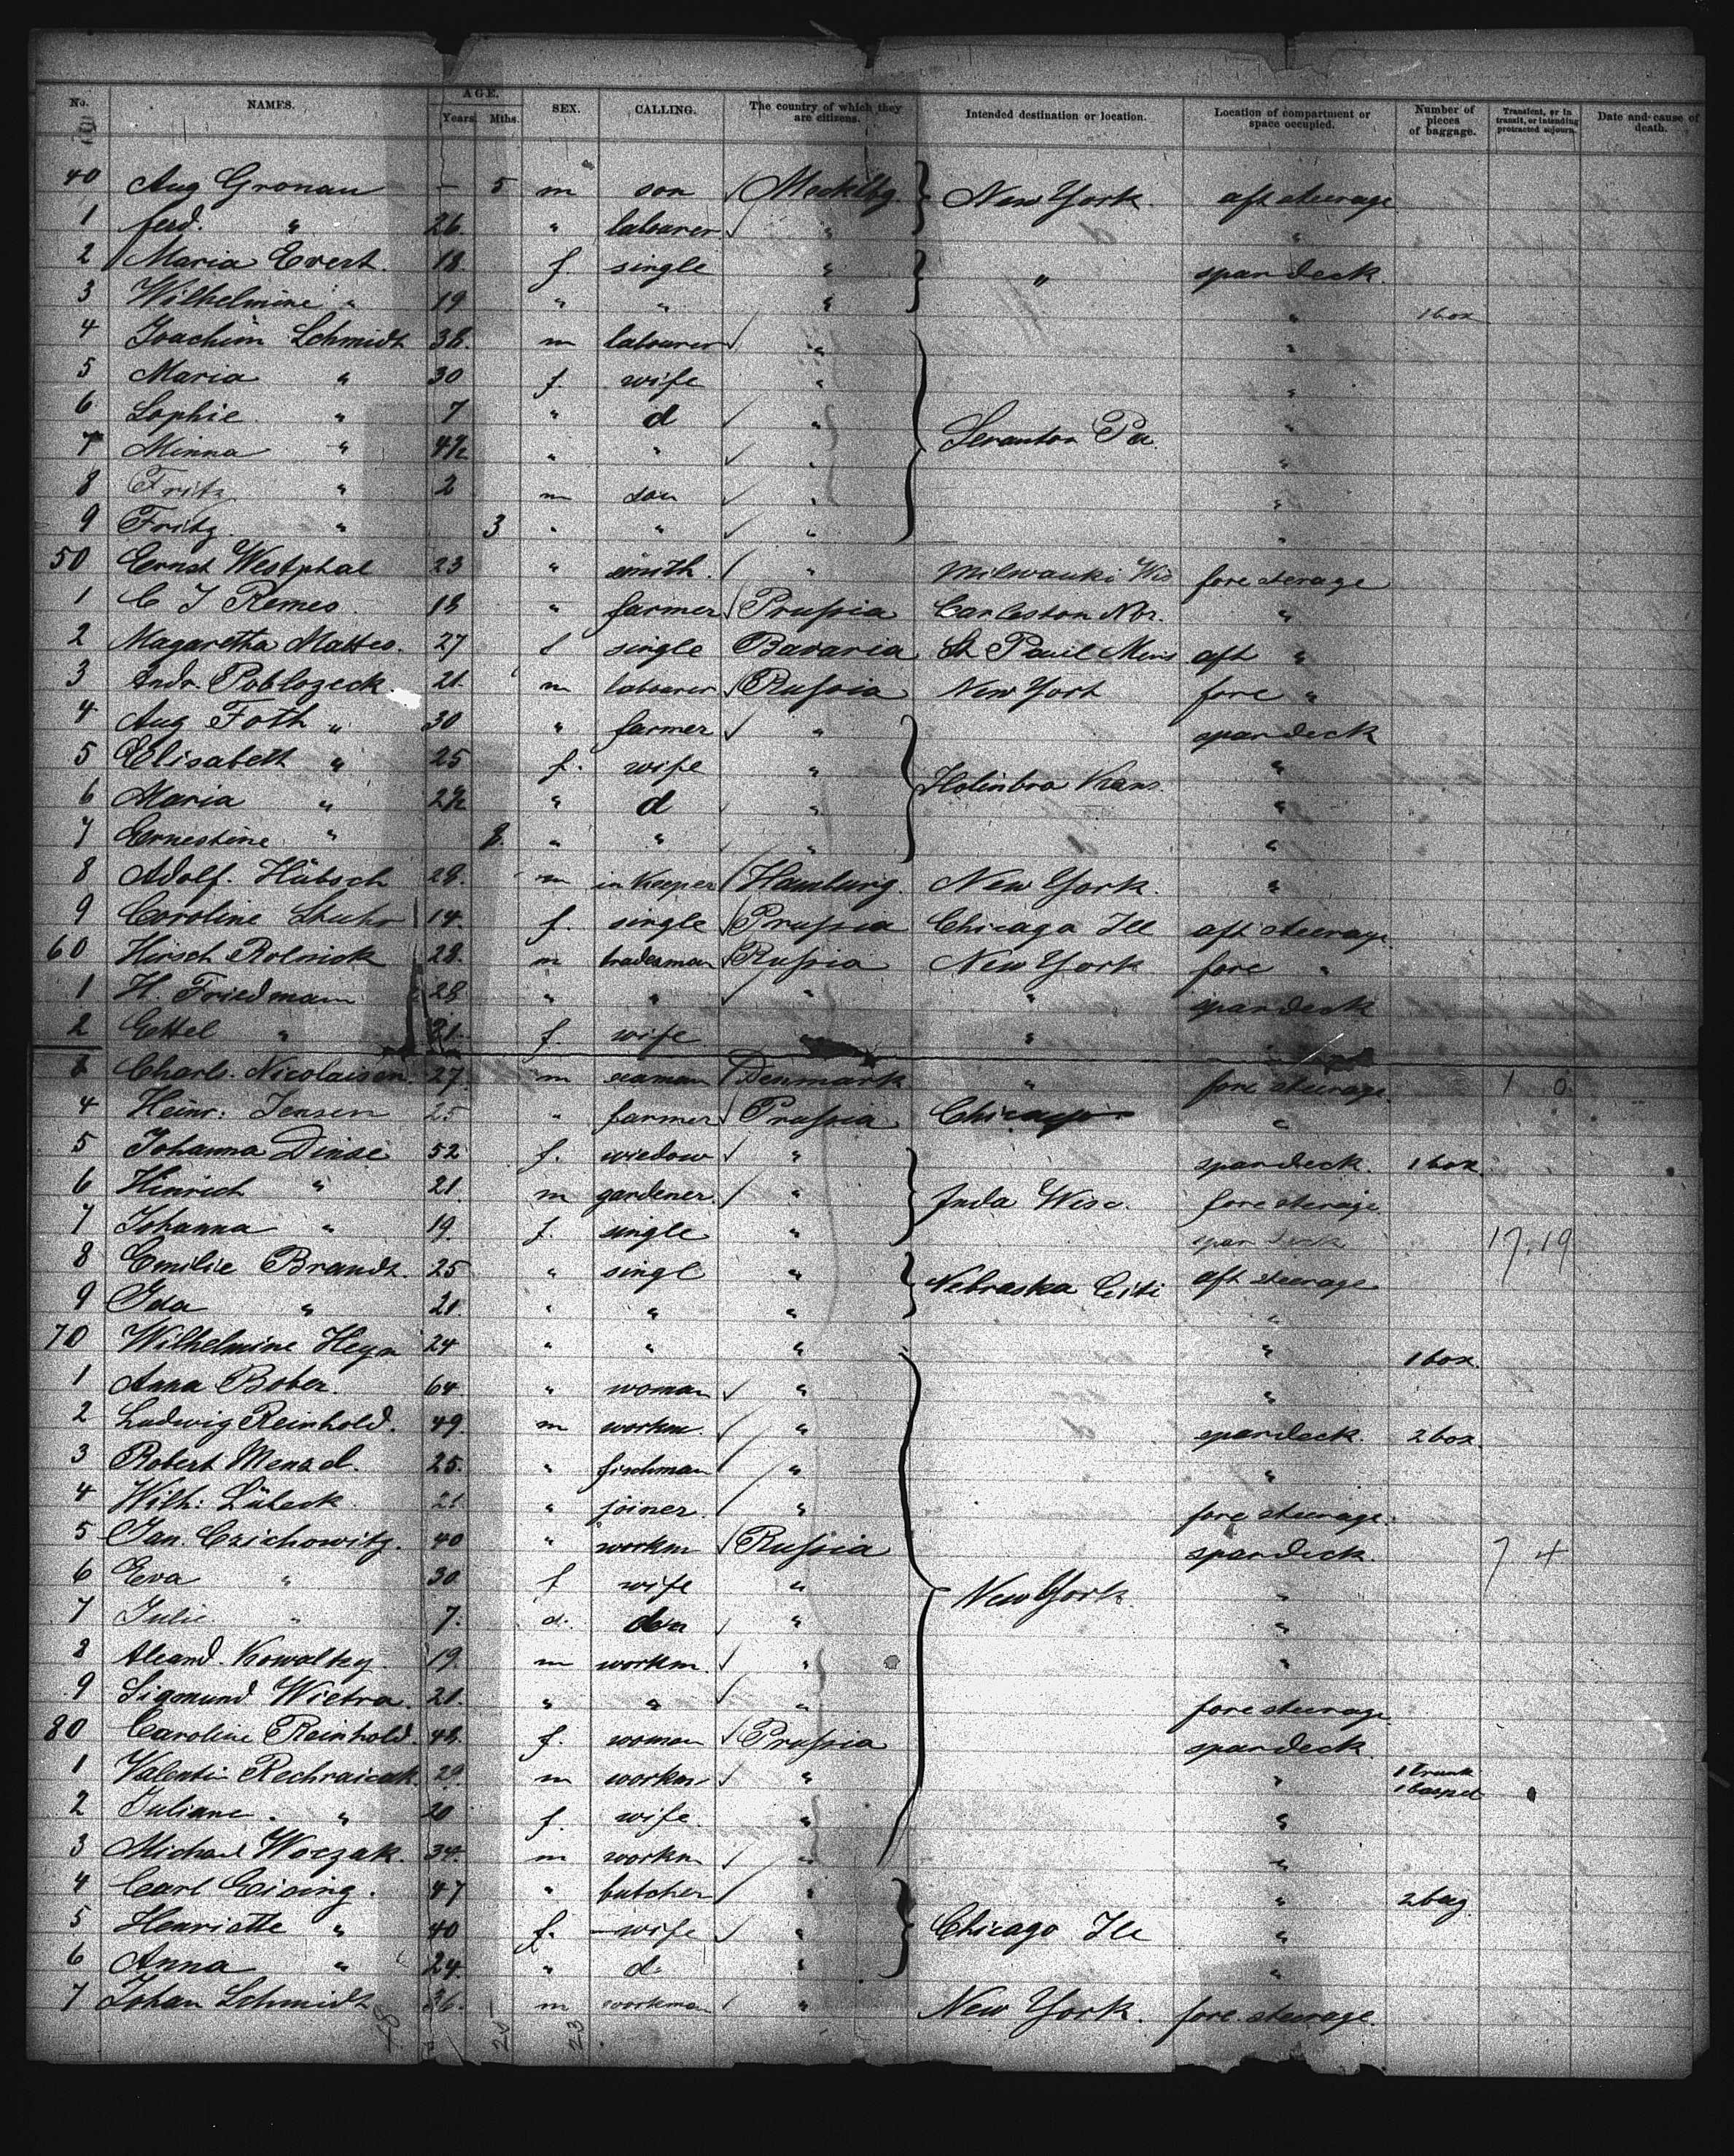 No. NAMES. AGE. Years. Mths. SEX. CALLING. The country of which they are citizens. Intended destination or location. Location of compartment or space occupied. Number of pieces of baggage. Transient, or in transit, or intending protracted sojourn. Date and cause of death.
40 Aug Gronau – 5 m son Mecklbg. New York. aft steerage
1 ferd. " 26 " labourer " "
2 Maria Evert. 18. f. single " " spardeck
3 Wilhelmine " 19 " " " " 1 box
4 Joachim Schmidt 38. m labourer " "
5 Maria " 30 f. wife " "
6 Sophie " 7 " d " Scranton Pa. "
7 Minna " 4½ " " " "
8 Fritz " 2 m son " "
9 Fritz " 3 " " " "
50 Ernst Westphal 23 " smith. " Milwauki Wis fore sterage
1 C J Remes. 18 " farmer Prussia Carleston "
2 Magaretha Mattes. 27 f single Bavaria St Paul Mins aft "
3 Andr. Poblozeck 21. m labourer Russia New York fore "
4 Aug Foth " 30 " farmer " spardeck
5 Elisabeth " 25 f. wife " "
6 Maria " 2½ " d " Holinbro Kans. "
7 Ernestine " 8. " " " "
8 Adolf. Hübsch 28. m inkeeper Hamburg. New York. "
9 Caroline Stuhr 14. f. single Prussia Chicago Ill aft steerage
60 Hirsch Rolnick 28. m tradesman Russia New York fore "
1 H. Friedmann 28 " " " " spardeck
2 Ettel " 21. f wife " " "
3 Charls. Nicolaisen. 27. m seaman Denmark " fore steerage.
4 Heinr: Jensen 25 " farmer Prussia Chicago "
5 Johanna Dinse 52 f. wiedow " spardeck. 1 box
6 Hinrich " 21. m gardener. " Juda Wisc. fore sterage
7 Johanna " 19. f. single " spardeck 17.19
8 Emilie Brandt. 25 " singl " Nebraska Citi aft steerage
9 Ida " 21. " " " "
70 Wilhelmine Heyn 24 " " " " 1 box.
1 Anna Bober. 64. " woman " "
2 Ludwig Reinhold. 49. m workm. " spardeck. 2 box.
3 Robert Menzel. 25. " fischman " "
4 Wilh: Lübeck 21 " joiner. " fore steerage.
5 Jan. Czichowitz. 40 " workm Russia spardeck. 7 4
6 Eva " 30 f wife " New York. "
7 Julie " 7. d. " "
8 Alexand. Kowalky. 19. m workm. " "
9 Sigmund Wietra. 21. " " " fore steerage
80 Caroline Reinhold. 48. f. woman Prussia spardeck.
1 Valentin 29. m workm " " 1 trunk
1 
2 Juliane. " 20 f. wife. " "
3 Michael Woczak. 34. m workm " "
4 Carl Eising. 47 " butcher " " 2 bag
5 Henriette " 40 f. wife " Chicago Ill "
6 Anna " 24. " d. " "
7 Johan Schmidt 36. m workman " New York. fore steerage.